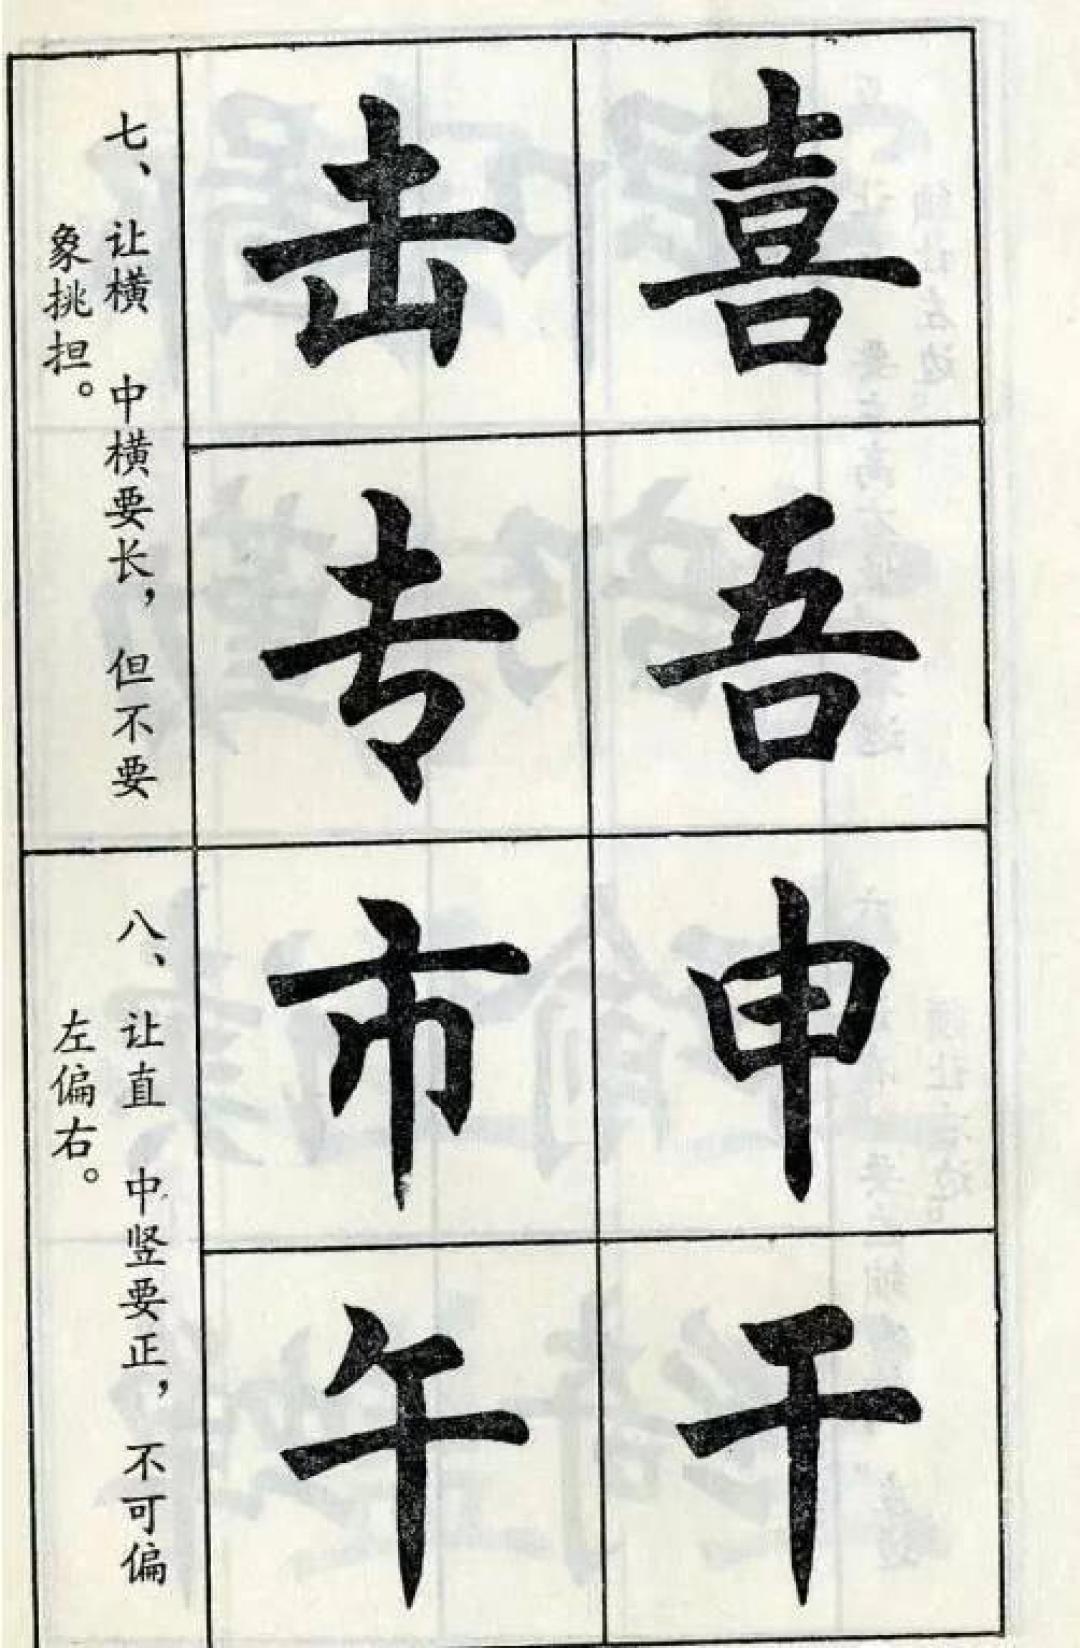 喜吾
击专
七、让横 中横要长，但不要
象挑担。
申干
市午
八、让直 中竖要正，不可偏
左偏右。